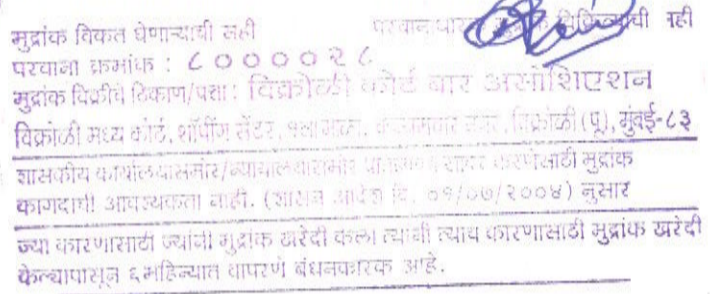 मुद्रांक विकत घेणाऱ्याची सही परवानाधारक मुद्रांक विक्रेत्याची सही
परवाना क्रमांक : ८००००२८
मुद्रांक विक्रीचे ठिकाण/पत्ता : विक्रोळी कोर्ट बार असोशिएशन
विक्रोळी मध्य कोर्ट, शॉपींग सेंटर, १ला माळा, कन्नमवार नगर, विक्रोळी (पू), मुंबई-८३
शासकीय कार्यालयासमोर/न्यायालयासमोर प्रतिज्ञापत्र सादर करणेसाठी मुद्रांक
कागदाची आवश्यकता नाही. (शासन आदेश दि. ०१/०७/२००४) नुसार
ज्या कारणासाठी ज्यांनी मुद्रांक खरेदी केला त्यांनी त्याच कारणासाठी मुद्रांक खरेदी
केल्यापासून ६ महिन्यात वापरणे बंधनकारक आहे.